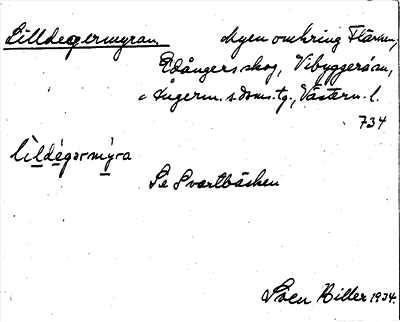 Lilldegermyran Myren omkring Flärm,
Edångers skog, Vibyggerå sn,
Ångerm. s. doms.tg., Västern. l.
734
lìldégərmýra
Se Svartbäcken
Sven Hiller 1934.